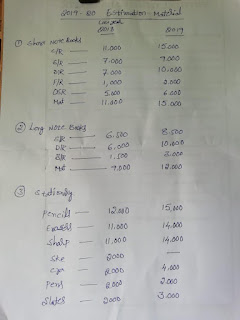 2019-20 Estimation - Material
2018 2019
① Short Note Books
S/R — 11.000 15.000
B/R — 7.000 9.000
D/R — 7.000 10.000
F/R — 1,000 2.000
OSR — 5.000 6.000
Mat — 11.000 15.000
② Long Note Books
C/R — 6.500 8.500
D/R — 6.000 10.000
B/R — 1.500 3.000
Mat — 9.000 12.000
③ Stationery
Pencils — 12.000 15.000
Erasers — 11.000 14.000
Sharp — 11,000 14.000
Ske — 2000 —
Cyo — 2.000 4.000
Pens — 2.000
Slates — 2000 3.000